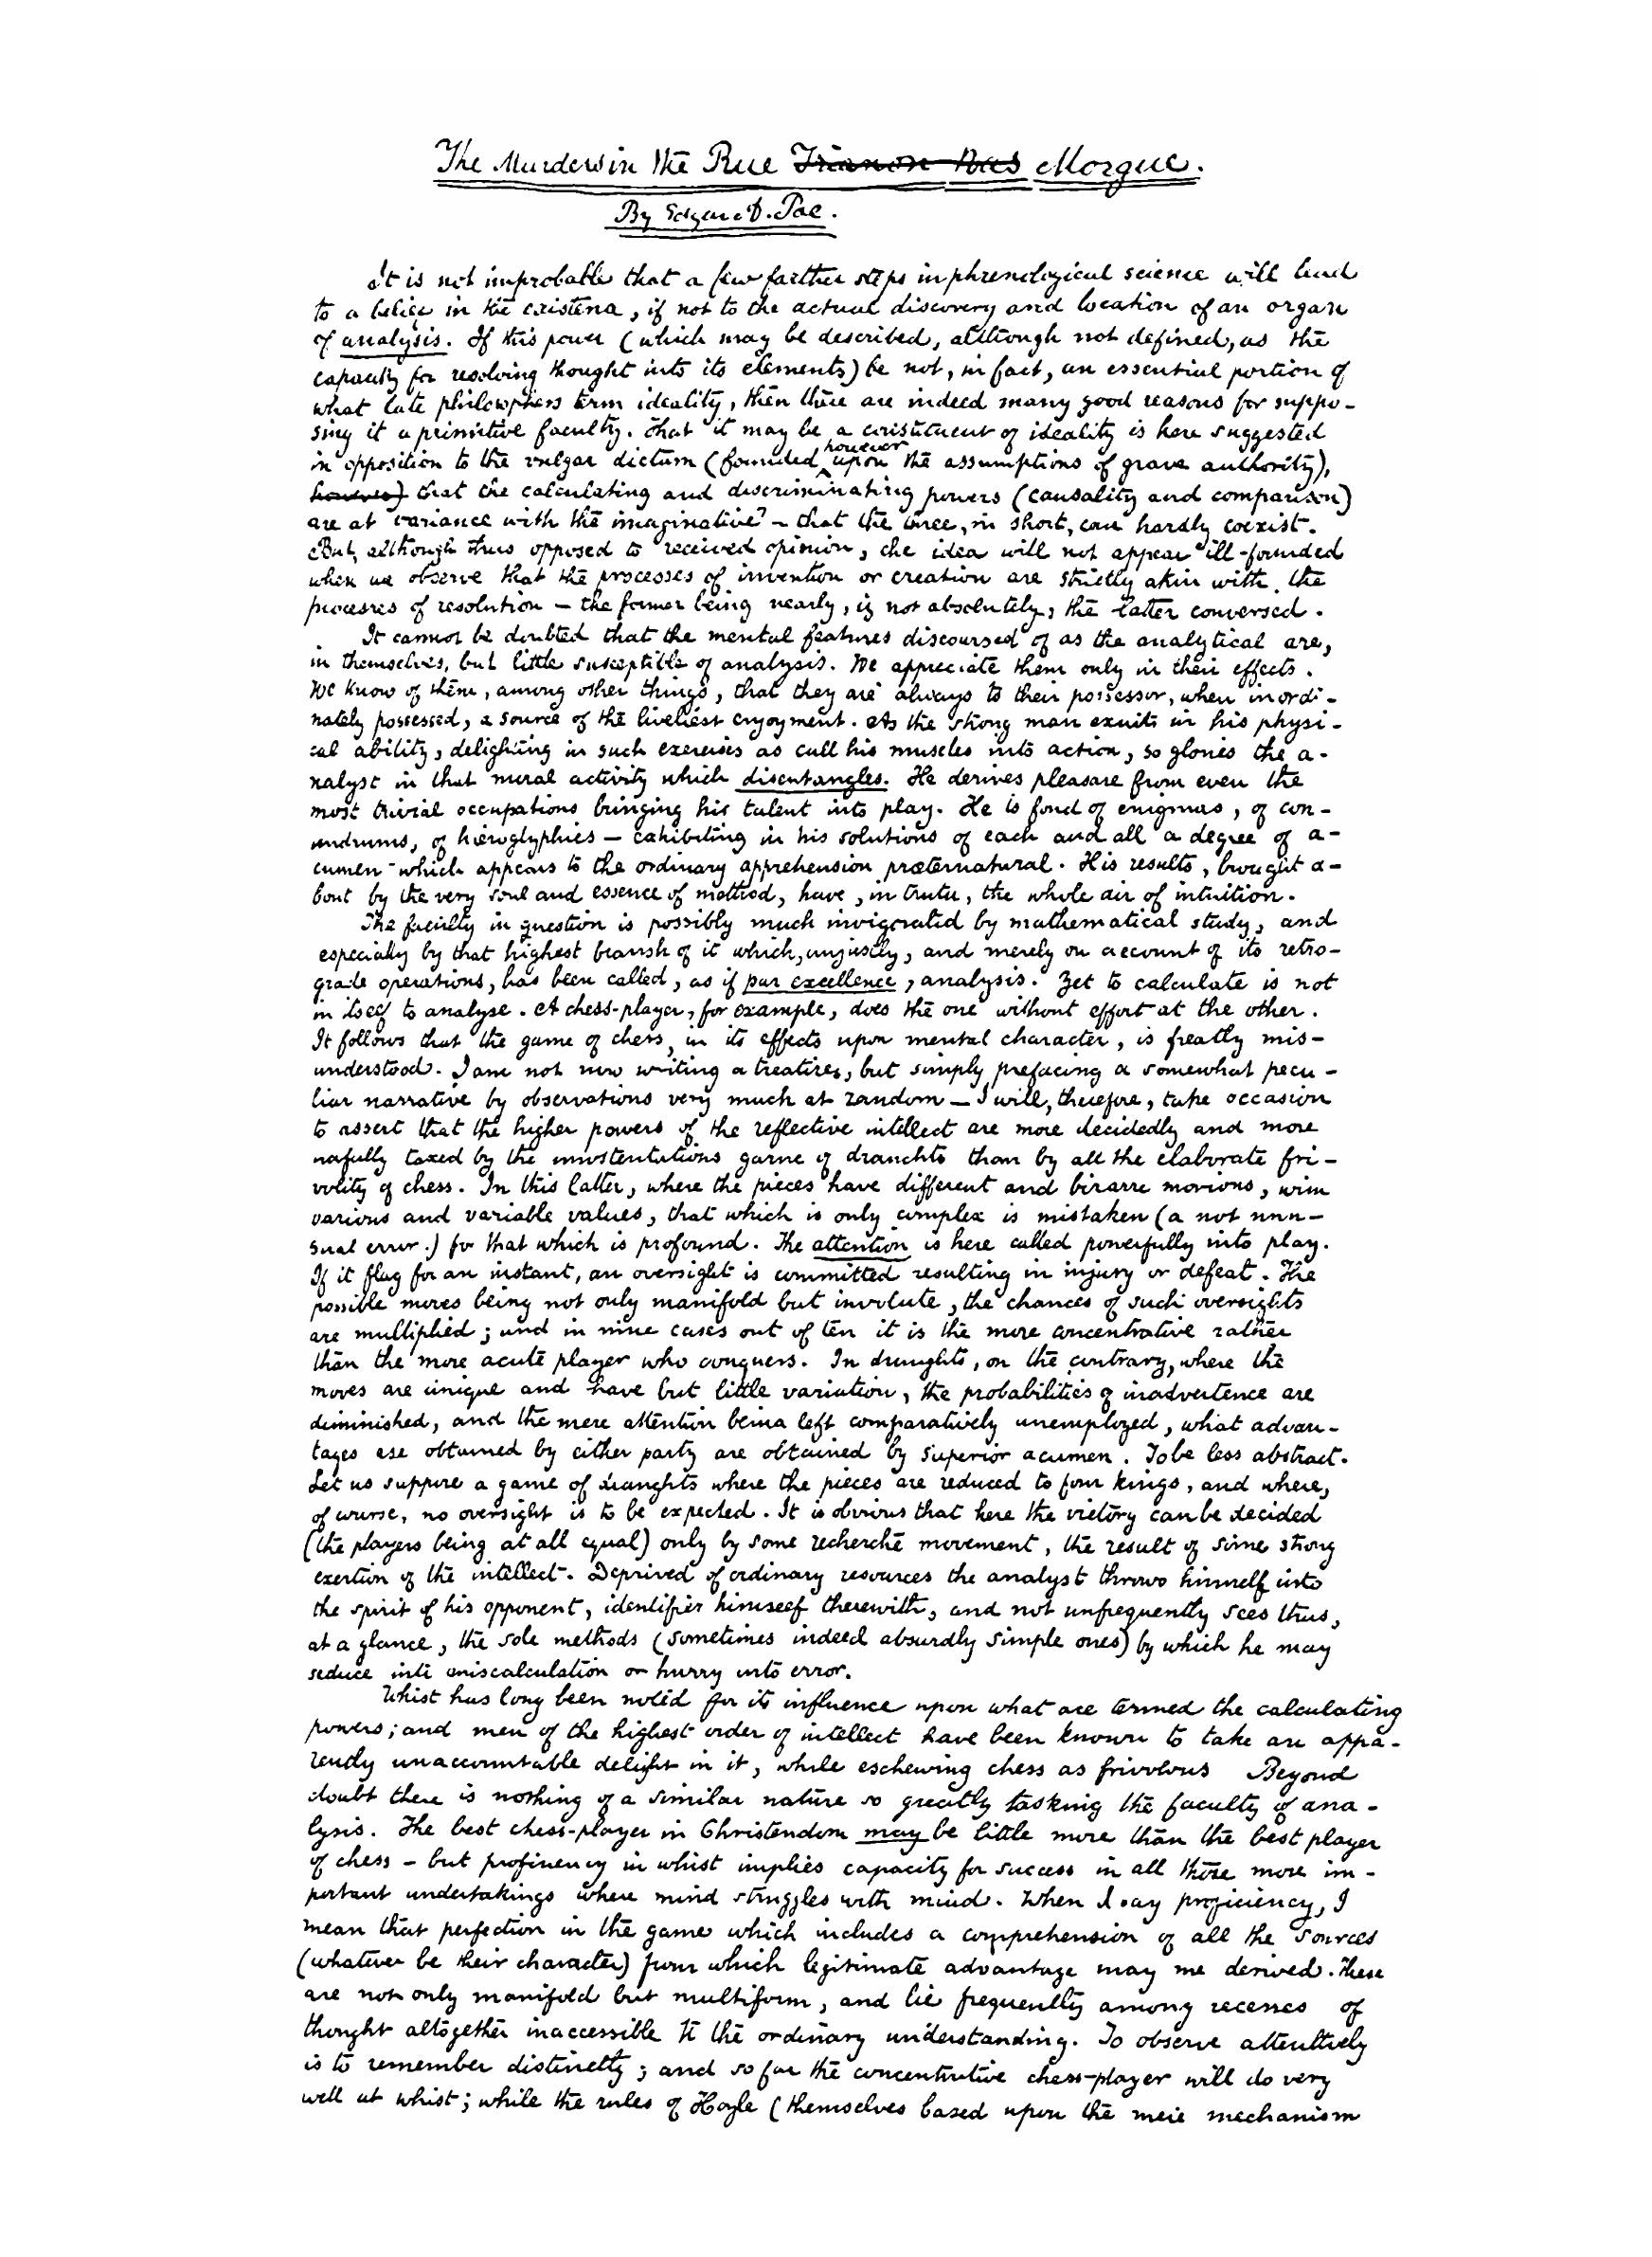 The Murders in the Rue Trianon Bas Morgue.
By Edgar A. Poe.
It is not improbable that a few farther steps in phrenological science will lead
to a belief in the existence, if not to the actual discovery and location of an organ
of analysis. If this power (which may be described, although not defined, as the
capacity for resolving thought into its elements) be not, in fact, an essential portion of
what late philosophers term ideality, then there are indeed many good reasons for suppo-
sing it a primitive faculty. That it may be a constituent of ideality is here suggested
in opposition to the vulgar dictum (founded, however upon the assumptions of grave authority),
however) that the calculating and discriminating powers (causality and comparison)
are at variance with the imaginative - that the three, in short, can hardly coexist.
But, although thus opposed to received opinion, the idea will not appear ill-founded
when we observe that the processes of invention or creation are strictly akin with the
processes of resolution — the former being nearly, if not absolutely, the latter conversed.
It cannot be doubted that the mental features discoursed of as the analytical are,
in themselves, but little susceptible of analysis. We appreciate them only in their effects.
We know of them, among other things, that they are always to their possessor, when inordi-
nately possessed, a source of the liveliest enjoyment. As the strong man exults in his physi-
cal ability, delighting in such exercises as call his muscles into action, so glories the a-
nalyst in that moral activity which disentangles. He derives pleasure from even the
most trivial occupations bringing his talent into play. He is fond of enigmas, of con-
undrums, of hieroglyphics — exhibiting in his solutions of each and all a degree of a-
cumen which appears to the ordinary apprehension præternatural. His results, brought a-
bout by the very soul and essence of method, have, in truth, the whole air of intuition.
The faculty in question is possibly much invigorated by mathematical study, and
especially by that highest branch of it which, unjustly, and merely on account of its retro-
grade operations, has been called, as if par excellence, analysis. Yet to calculate is not
in itself to analyse. A chess-player, for example, does the one without effort at the other.
It follows that the game of chess, in its effects upon mental character, is greatly mis-
understood. I am not now writing a treatise, but simply prefacing a somewhat pecu-
liar narrative by observations very much at random — I will, therefore, take occasion
to assert that the higher powers of the reflective intellect are more decidedly and more
usefully taxed by the unostentatious game of draughts than by all the elaborate fri-
volity of chess. In this latter, where the pieces have different and bizarre motions, with
various and variable values, that which is only complex is mistaken (a not unu-
sual error.) for that which is profound. The attention is here called powerfully into play.
If it flag for an instant, an oversight is committed resulting in injury or defeat. The
possible moves being not only manifold but involute, the chances of such oversights
are multiplied; and in nine cases out of ten it is the more concentrative rather
than the more acute player who conquers. In draughts, on the contrary, where the
moves are unique and have but little variation, the probabilities of inadvertence are
diminished, and the mere attention being left comparatively unemployed, what advan-
tages are obtained by either party are obtained by superior acumen. To be less abstract.
Let us suppose a game of draughts where the pieces are reduced to four kings, and where,
of course, no oversight is to be expected. It is obvious that here the victory can be decided
(the players being at all equal) only by some recherché movement, the result of some strong
exertion of the intellect. Deprived of ordinary resources the analyst throws himself into
the spirit of his opponent, identifies himself therewith, and not unfrequently sees thus,
at a glance, the sole methods (sometimes indeed absurdly simple ones) by which he may
seduce into miscalculation or hurry into error.
Whist has long been noted for its influence upon what are termed the calculating
powers; and men of the highest order of intellect have been known to take an appa-
rently unaccountable delight in it, while eschewing chess as frivolous Beyond
doubt there is nothing of a similar nature so greatly tasking the faculty of ana-
lysis. The best chess-player in Christendom may be little more than the best player
of chess - but proficiency in whist implies capacity for success in all those more im-
portant undertakings where mind struggles with mind. When I say proficiency, I
mean that perfection in the game which includes a comprehension of all the sources
(whatever be their character) from which legitimate advantage may me derived. These
are not only manifold but multiform, and lie frequently among recesses of
thought altogether inaccessible to the ordinary understanding. To observe attentively
is to remember distinctly; and so far the concentrative chess-player will do very
well at whist; while the rules of Hoyle (themselves based upon the mere mechanism